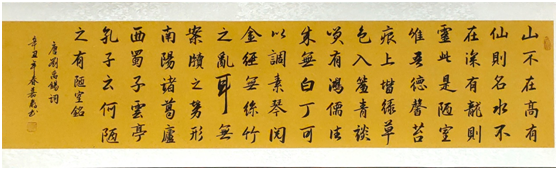 山不在高有
仙則名水不
在深有龍則
靈此是陋室
惟吾德馨苔
痕上堦綠草
色入簾青談
笑有鴻儒往
來無白丁可
以調素琴閱
金經無絲竹
之亂耳無
案牘之勞形
南陽諸葛廬
西蜀子雲亭
孔子云何陋
之有陋室銘
唐劉禹錫詞
辛丑年春書